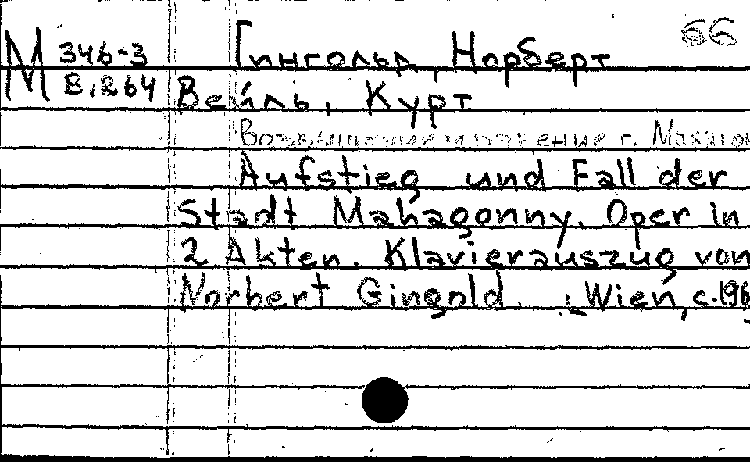 66
М 346-3 Гингольд, Норберт
В.264 Вейль, Курт
Возвышение и падение г.
Aufstieg und Fall der
Stadt Mahagonny. Oper in
2 Akten. Klavierauszug von
Norbert Gingold. Wien, c.196